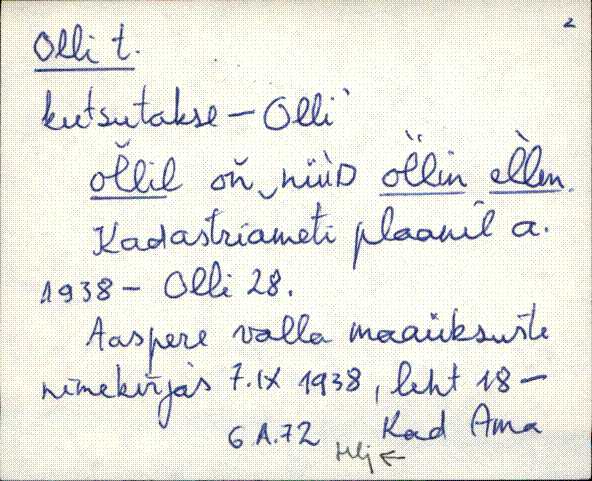 2
Olli t.
kutsutakse – Olli`
ol̆lil oň nüüD ol̆lin el̀len.
Kadastriameti plaanil a.
1938 – Olli 28.
Aaspere valla maaüksuste
nimekirjas 7.IX 1938, leht 18 –
6 A.72 Kad Ama
Hlj ←